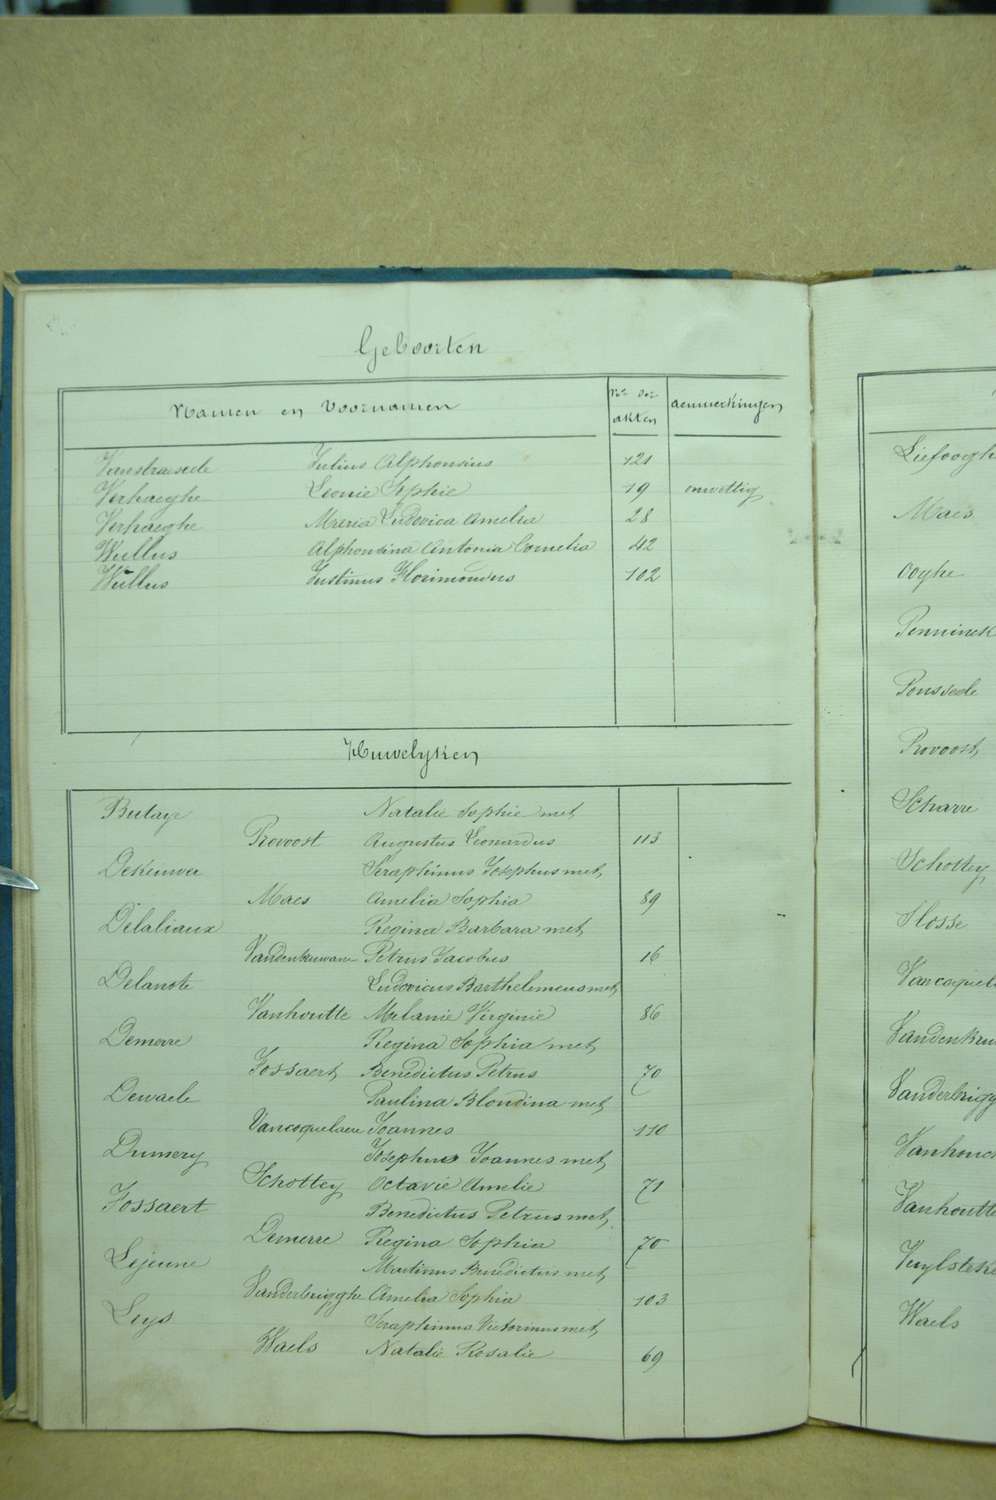 Geboorten
Namen en Voornamen
Nrs der akten
aenmerkingen
Vanstraseele Julius Alphonsius 121
Verhaeghe Leonie Sophie 19 onwettig
Verhaeghe Maria Ludovica Amelia 28
Wullus Alphonsina Antonia Cornelia 42
Wullus Justinus Florimondus 102
Huwelyken
Butaye Natalie Sophie met
Provoost Augustus Leonardus 113
Dekeuwer Seraphinus Josephus met
Maes Amelia Sophia 89
Delaliaux Regina Barbara met
Petrus Jacobus 16
Delanote Ludovicus Barthelemeus met
Vanhoutte Melanie Virginie 86
Demerre Regina Sophia met
Fossaert Benedictus Petrus 70
Dewaele Paulina Blondina met
Vancoquelaere Joannes 110
Dumery Josephus Joannes met
Schottey Octavie Amelie 71
Fossaert Benedictus Petrus met
Demerre Regina Sophia 70
Lejeune Martinus Benedictus met
Vanderbrigghe Amelia Sophia 103
Leys Seraphinus Victorinus met
Waels Natalie Rosalie 69
Liefoogh
Maes
Ooghe
Penninck
Poussele
Provoost
Scharre
Schottey
Slosse
Vancoquel
Vandenkeu
Vanderbrigg
Vanhouc
Vanhoutte
Vuylsteke
Waels